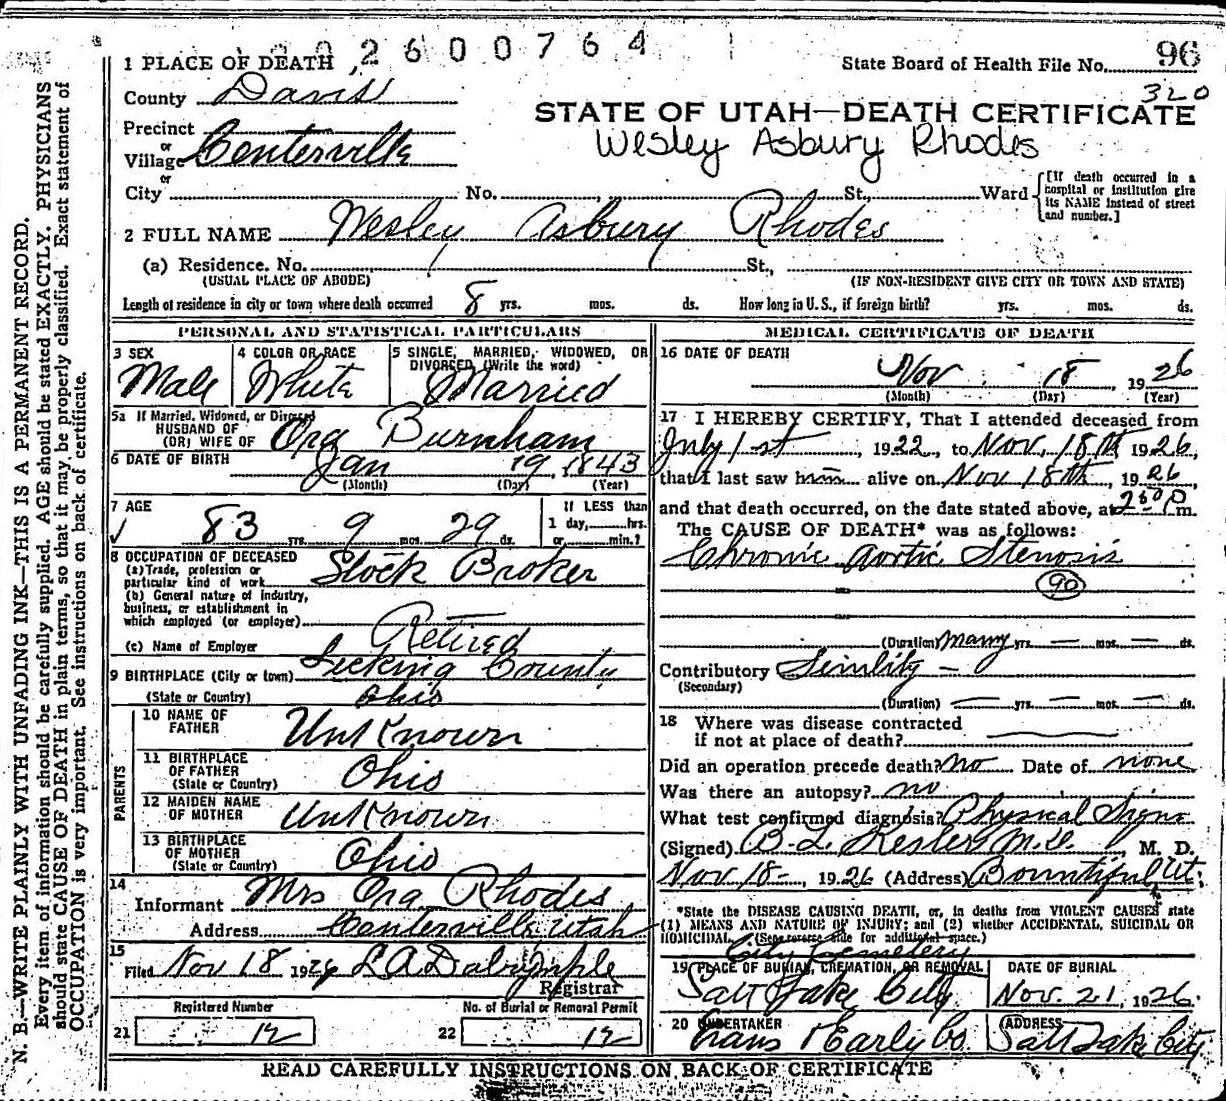 2600764
1 PLACE OF DEATH
State Board of Health File No. 96
County Davis
320
STATE OF UTAH—DEATH CERTIFICATE
Precinct
or
Village Centerville
Wesley Asbury Rhodes
or
City No. St., Ward
[If death occurred in a hospital or institution give its NAME instead of street and number.]
2 FULL NAME Wesley Asbury Rhodes
(a) Residence. No. St.,
(USUAL PLACE OF ABODE) (IF NON-RESIDENT GIVE CITY OR TOWN AND STATE)
Length of residence in city or town where death occurred 8 yrs. mos. ds. How long in U. S., if foreign birth? yrs. mos. ds.
PERSONAL AND STATISTICAL PARTICULARS
3 SEX
Male
4 COLOR OR RACE
White
5 SINGLE, MARRIED, WIDOWED, OR DIVORCED (Write the word)
Married
5a If Married, Widowed, or Divorced
HUSBAND OF
(OR) WIFE OF Ora Burnham
6 DATE OF BIRTH Jan 19, 1843
(Month) (Day) (Year)
7 AGE
83 yrs. 9 mos. 29 ds.
If LESS than
1 day, hrs.
or min.?
8 OCCUPATION OF DECEASED
(a) Trade, profession or
particular kind of work Stock Broker
(b) General nature of industry,
business, or establishment in
which employed (or employer)
Retired
(c) Name of Employer
9 BIRTHPLACE (City or town) Licking County
(State or Country) Ohio
PARENTS
10 NAME OF FATHER UnKnown
11 BIRTHPLACE OF FATHER (State or Country) Ohio
12 MAIDEN NAME OF MOTHER UnKnown
13 BIRTHPLACE OF MOTHER (State or Country) Ohio
14
Informant Mrs Ora Rhodes
Address Centerville Utah
15
Filed Nov 18 1926 L A Dalrymple
Registrar
Registered Number
21 12
No. of Burial or Removal Permit
22 12
MEDICAL CERTIFICATE OF DEATH
16 DATE OF DEATH
Nov 18, 1926
(Month) (Day) (Year)
17 I HEREBY CERTIFY, That I attended deceased from
July 1st, 1922, to Nov. 18th 1926,
that I last saw him alive on Nov 18th, 1926,
and that death occurred, on the date stated above, at m.
The CAUSE OF DEATH* was as follows:
Chronic Aortic Stenosis
90
(Duration) Many yrs. — mos. — ds.
Contributory Senility —
(Secondary)
(Duration) — yrs. — mos. — ds.
18 Where was disease contracted
if not at place of death?
Did an operation precede death? no Date of none
Was there an autopsy? no
What test confirmed diagnosis? Physical Signs
(Signed) B. L. Kesler M.D., M. D.
Nov 18-, 1926 (Address) Bountiful Ut.
*State the DISEASE CAUSING DEATH, or, in deaths from VIOLENT CAUSES state
(1) MEANS AND NATURE OF INJURY; and (2) whether ACCIDENTAL, SUICIDAL OR
HOMICIDAL. (See reverse side for additional space.)
City Cemetery
19 PLACE OF BURIAL, CREMATION, OR REMOVAL
Salt Lake City
DATE OF BURIAL
Nov. 21, 1926
20 UNDERTAKER
Evans & Early Co.
ADDRESS
Salt Lake City
READ CAREFULLY INSTRUCTIONS ON BACK OF CERTIFICATE
N. B.—WRITE PLAINLY WITH UNFADING INK—THIS IS A PERMANENT RECORD.
Every item of information should be carefully supplied. AGE should be stated EXACTLY. PHYSICIANS
should state CAUSE OF DEATH in plain terms, so that it may be properly classified. Exact statement of
OCCUPATION is very important. See instructions on back of certificate.